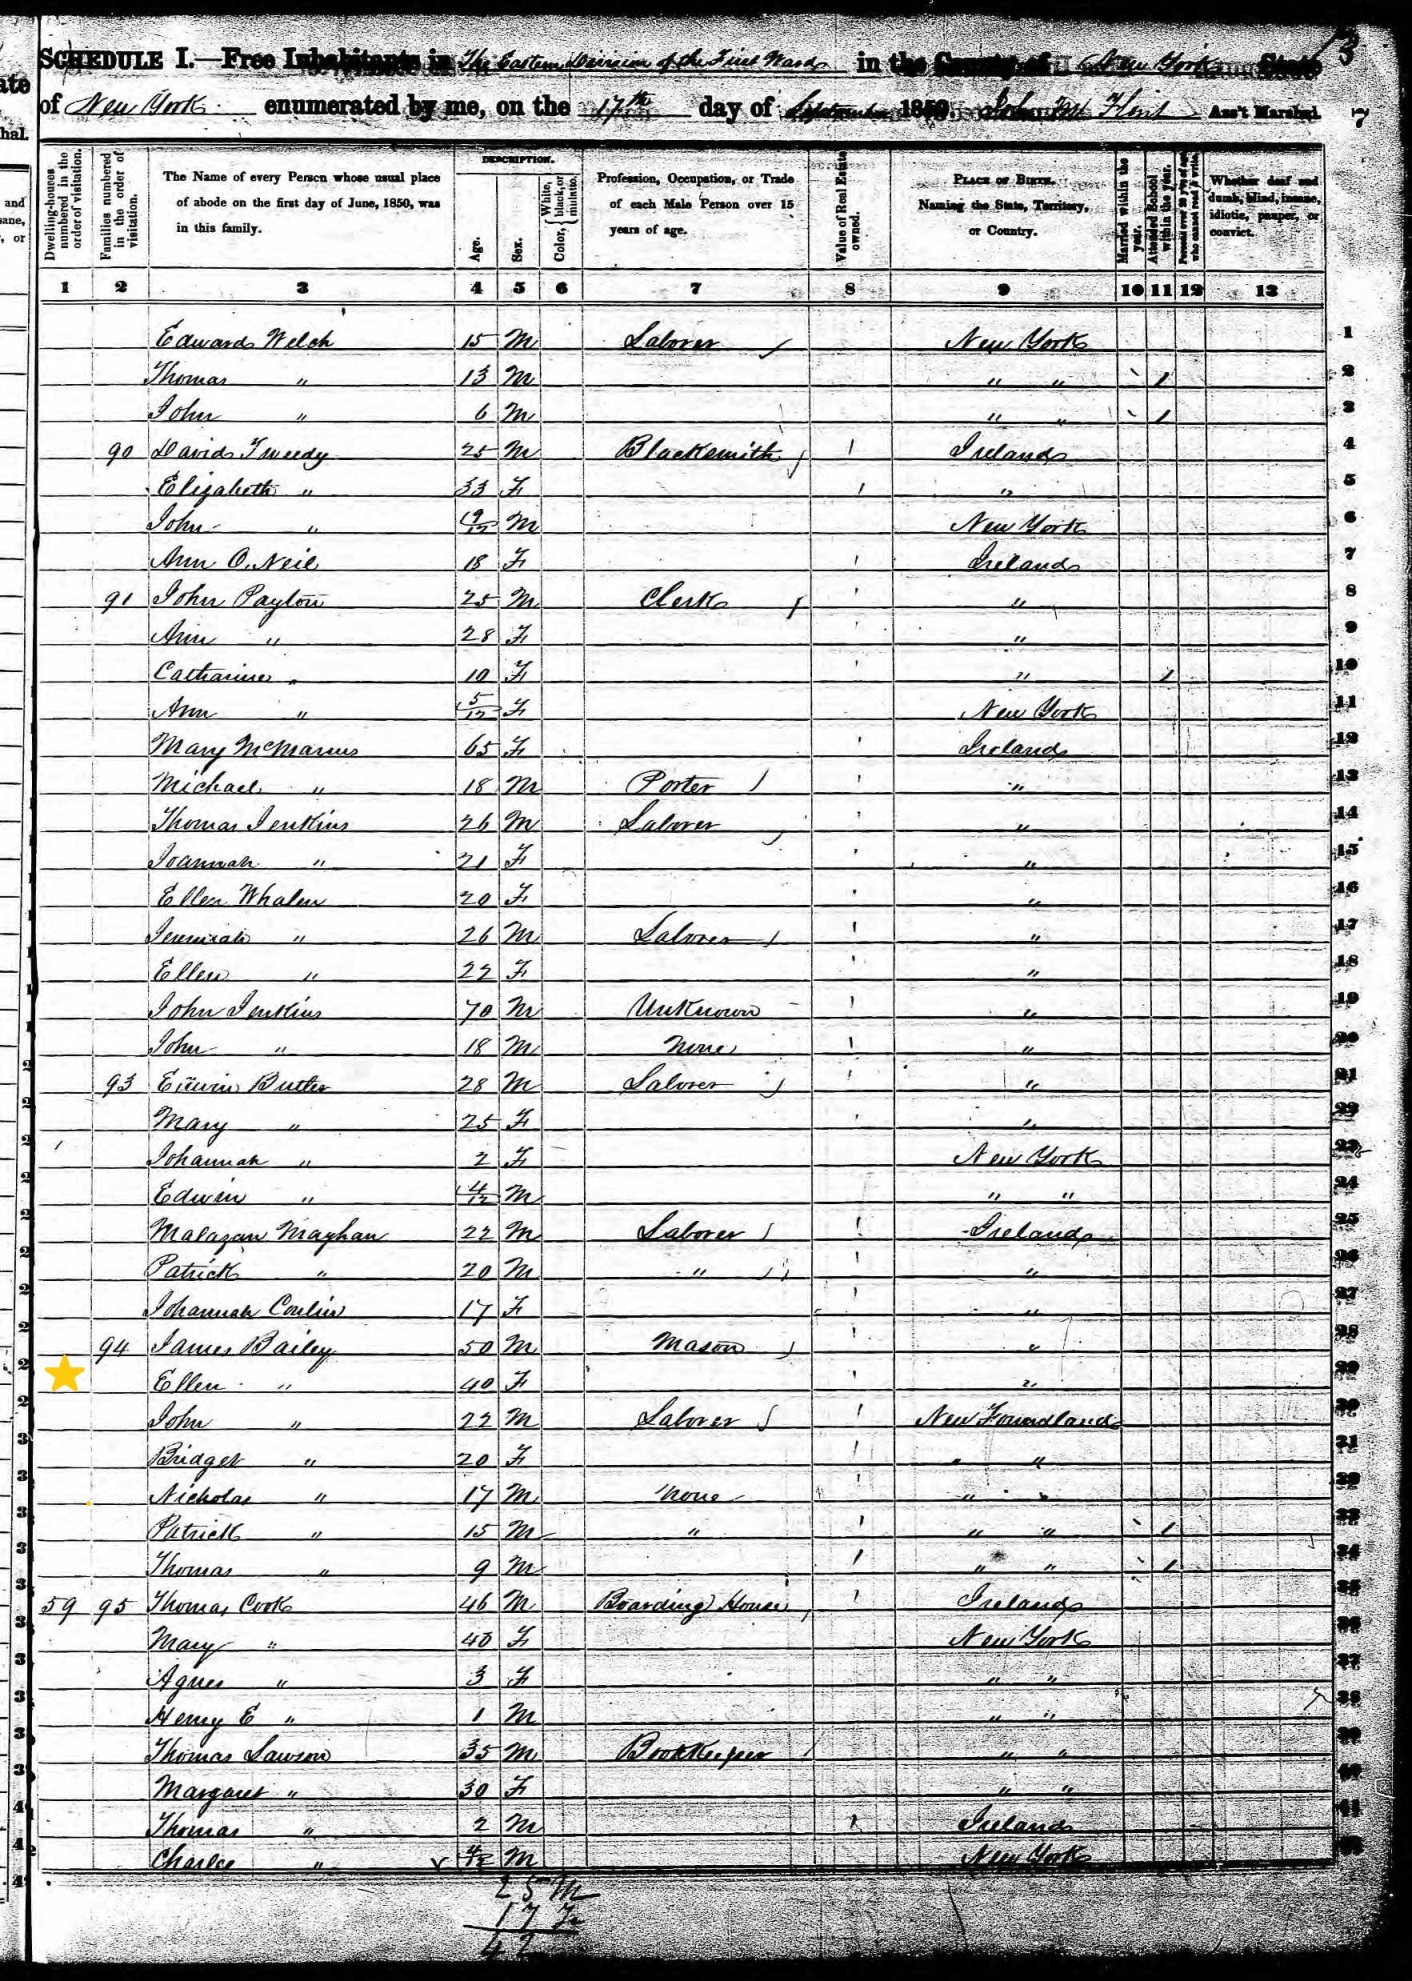 SCHEDULE I.—Free Inhabitants in The Eastern Division of the First Ward in the County of New York State
of New York enumerated by me, on the 17th day of September 1850. John M Flint Ass't Marshal.
13
7
Dwelling-houses numbered in the order of visitation.
Families numbered in the order of visitation.
The Name of every Person whose usual place of abode on the first day of June, 1850, was in this family.
DESCRIPTION.
Age.
Sex.
Color, White, black, or mulatto.
Profession, Occupation, or Trade of each Male Person over 15 years of age.
Value of Real Estate owned.
PLACE OF BIRTH. Naming the State, Territory, or Country.
Married within the year.
Attended School within the year.
Persons over 20 y'rs of age who cannot read & write.
Whether deaf and dumb, blind, insane, idiotic, pauper, or convict.
1 2 3 4 5 6 7 8 9 10 11 12 13
Edward Welch 15 M Laborer New York 1
Thomas " 13 M " " 1 2
John " 6 M " " 1 3
90 David Tweedy 25 M Blacksmith Ireland 4
Elizabeth " 33 F " 5
John " 19/12 M New York 6
Ann O. Neil 18 F Ireland 7
91 John Payton 25 M Clerk " 8
Ann " 28 F " 9
Catharine " 10 F " 1 10
Ann " 5/12 F New York 11
Mary McManus 65 F Ireland 12
Michael " 18 M Porter " 13
Thomas Jenkins 26 M Laborer " 14
Joannah " 21 F " 15
Ellen Whalen 20 F " 16
Jeremiah " 26 M Laborer " 17
Ellen " 22 F " 18
John Jenkins 70 M Unknown " 19
John " 18 M None " 20
93 Edwin Butler 28 M Laborer " 21
Mary " 25 F " 22
Johannah " 2 F New York 23
Edwin " 4/12 M " " 24
Malazan Maghan 22 M Laborer Ireland 25
Patrick " 20 M " " 26
Johannah Conlin 17 F " 27
94 James Bailey 50 M Mason " 28
Ellen " 40 F " 29
John " 22 M Laborer New Foundland 30
Bridget " 20 F " " 31
Nicholas " 17 M None " " 32
Patrick " 15 M " " " 1 33
Thomas " 9 M " " 1 34
59 95 Thomas Cook 46 M Boarding House Ireland 35
Mary " 40 F New York 36
Agnes " 3 F " " 37
Henry E " 1 M " " 38
Thomas Lawson 35 M Bookkeeper " " 39
Margaret " 30 F " " 40
Thomas " 2 M Ireland 41
Charles " 4/12 M New York 42
25 M
17 F
42